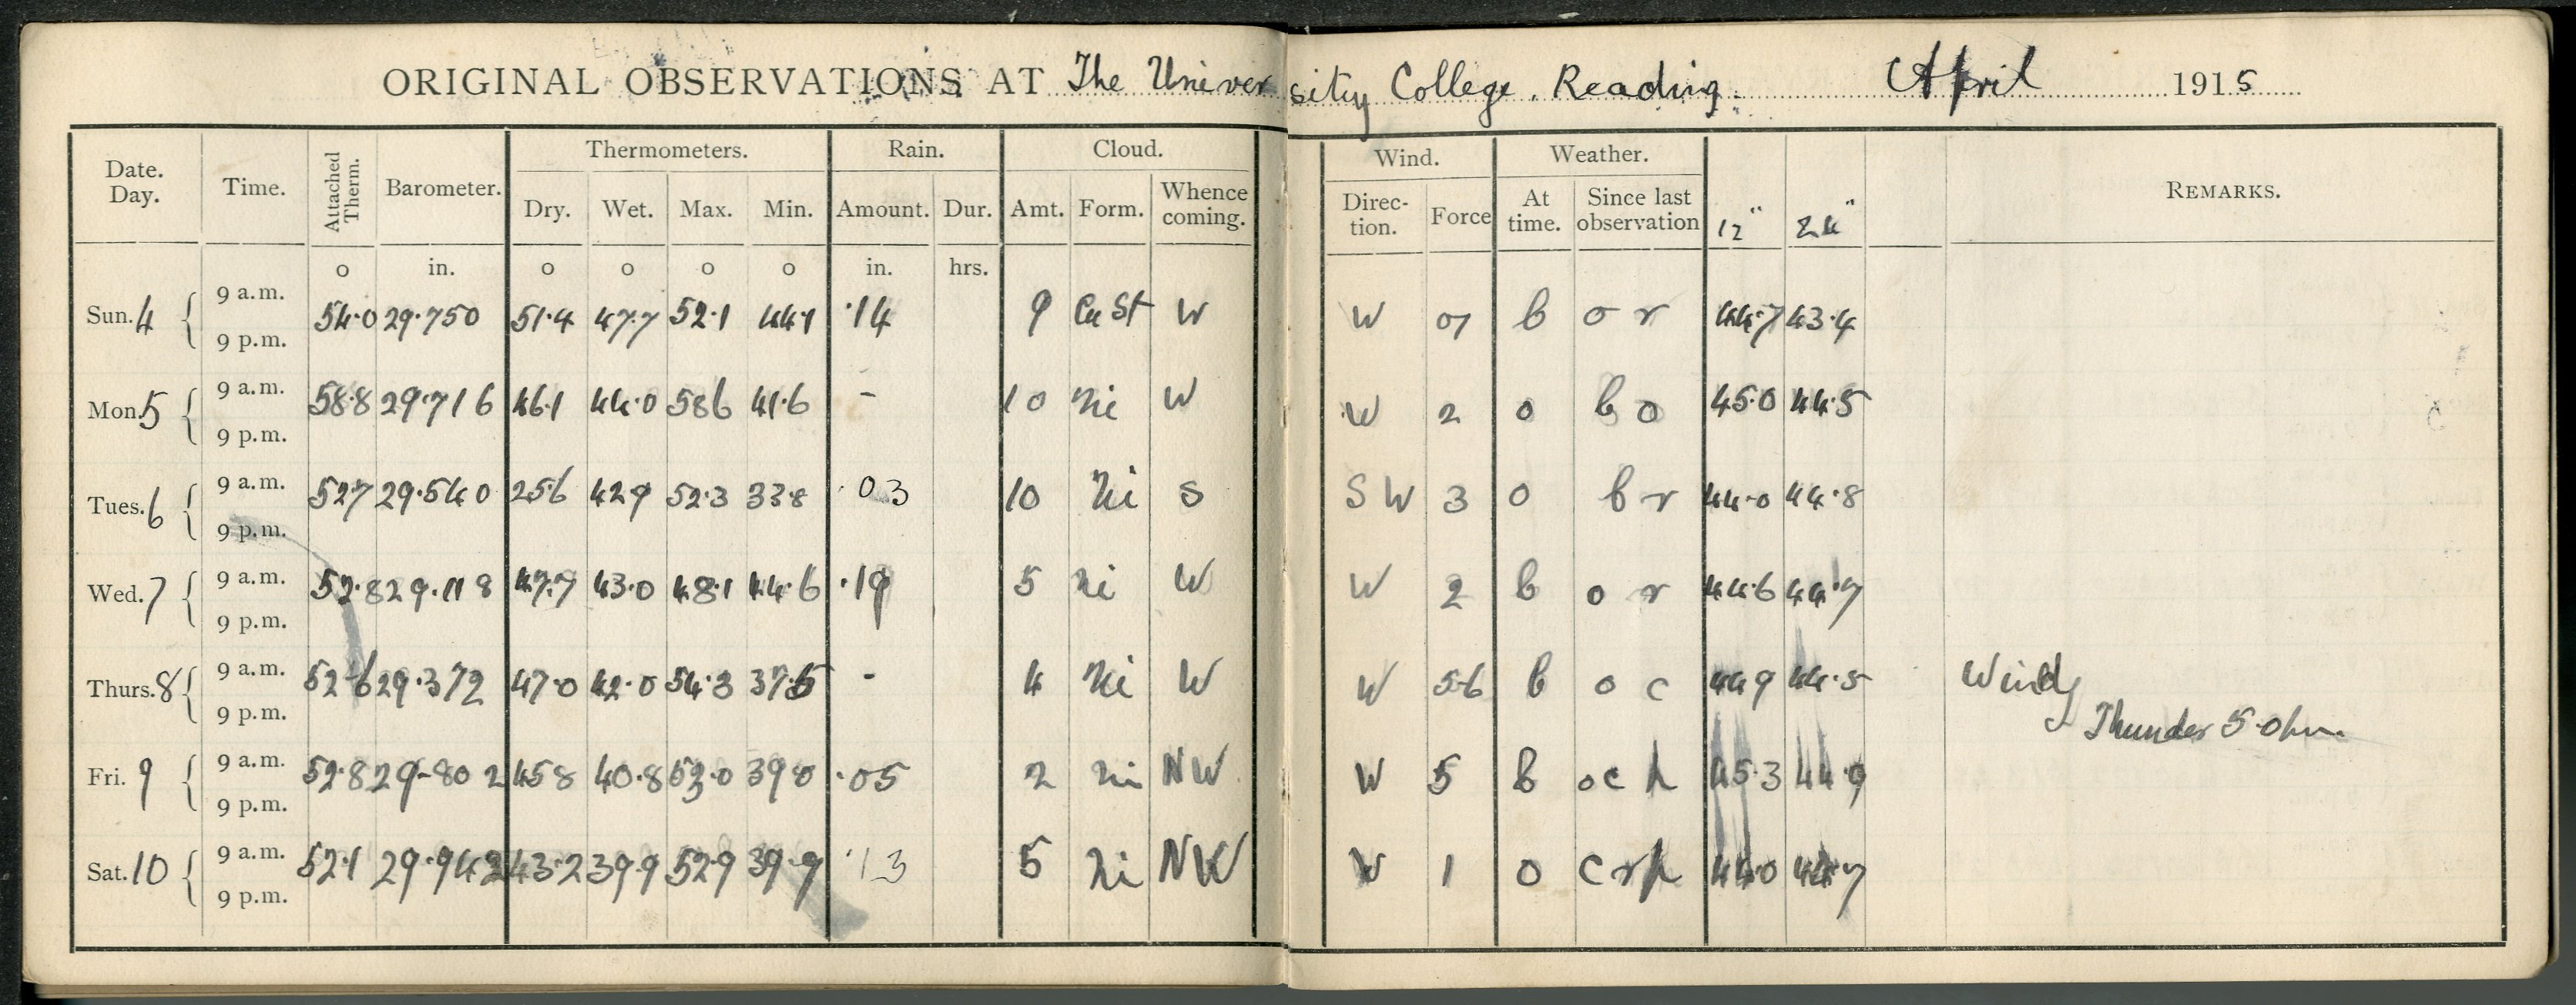 ORIGINAL OBSERVATIONS AT The University College, Reading. April 1915
Date. Day. Time. Attached Therm. Barometer. Thermometers. Rain. Cloud. Wind. Weather. REMARKS.
Dry. Wet. Max. Min. Amount. Dur. Amt. Form. Whence coming. Direc- tion. Force At time. Since last observation 12" 24"
o in. o o o o in. hrs.
Sun. 4 9 a.m. 54.0 29.750 51.4 47.7 52.1 44.1 .14 9 Cu St W W b o r 44.7 43.4
9 p.m.
Mon. 5 9 a.m. 58.8 29.716 46.1 44.0 58 6 41.6 - 10 Ni W W 2 o b o 45.0 44.5
9 p.m.
Tues. 6 9 a.m. 52.7 29.540 25.6 42 9 52.3 33.8 .03 10 Ni S SW 3 o b r 44.0 44.8
9 p.m.
Wed. 7 9 a.m. 52.8 29.118 47.7 43.0 48.1 44.6 .19 5 Ni W W 2 b o r 44.6 44.7
9 p.m.
Thurs. 8 9 a.m. 52.6 29.372 47.0 42.0 54.3 37.5 - 4 Ni W W 5-6 b o c 44 9 44.5 Windy
9 p.m. Thunder 5.0
Fri. 9 9 a.m. 52.8 29.802 45 8 40.8 53.0 39 0 .05 2 Ni NW W 5 b o c h 45.3 44.9
9 p.m.
Sat. 10 9 a.m. 52.1 29.942 43.2 39.9 52.9 39.9 .13 5 Ni NW W 1 o c r h 44.0 44.7
9 p.m.